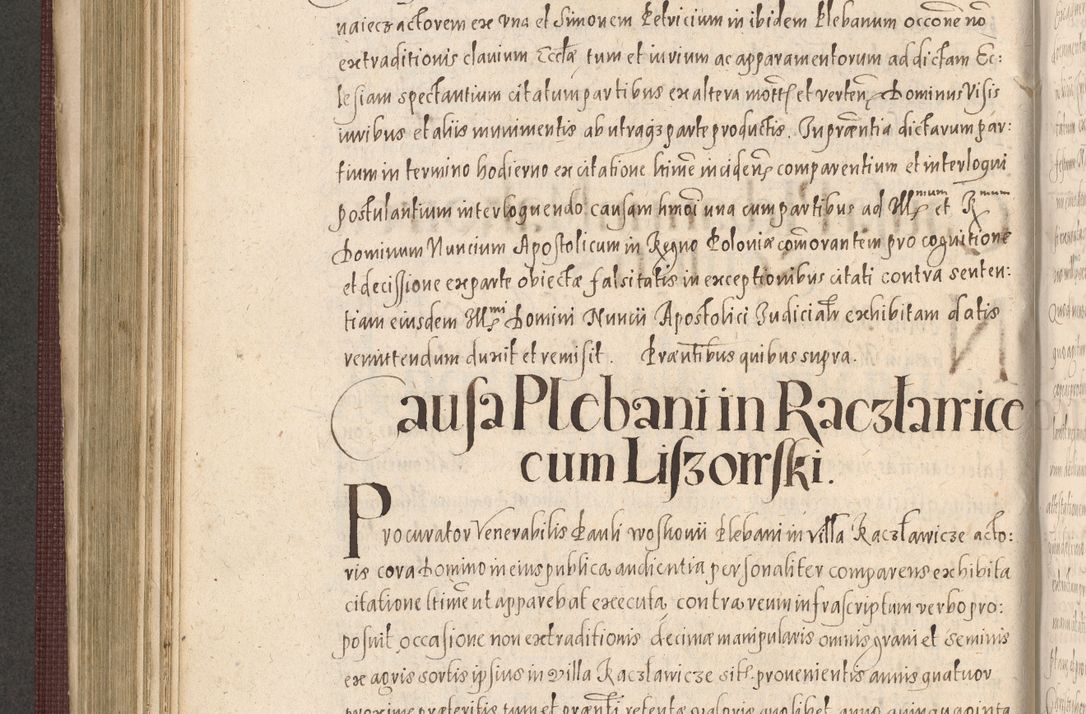 naiecz actorem ex una et Simonem Petricium in ibidem Plebanum occone nō
extraditionis clavium Eccłæ tum et iurium ac apparamentorum ad dictam Ec:
lesiam spectantium citatum partibus ex altera et verten Dominus Visis
iuribus et aliis munimentis ab utraqz parte productis. In præntia dictarum par:
tium in termino hodierno ex citatione inciden comparentium et interloqui
postulantium interloquendo causam hmōi una cum partibus ad Illmum et Rmum
Dominum Nuncium Apostolicum in Regno Poloniæ comorantem pro cognitione
et decissione ex parte obiectæ falsitatis in exceptionibus citati contra senten:
tiam eiusdem Illmi Domini Nuncii Apostolici Judicialr exhibitam datis
remittendum duxit et remisit. Præntibus quibus supra.
Causa Plebani in Raczławice
cum Liszowski.
Procurator Venerabilis Pauli Woskowii Plebani in villa Raczławicze acto:
ris cora Domino in eius publica audientia personaliter comparens exhibita
citatione ltime ut apparebat executa, contra reum infrascriptum verbo pro:
posuit occasione non extraditionis decimæ manipularis omnis grani et seminis
ex agris sortis ipsius in villa Raczławicze sit. provenientis annis quatuor
proxime præteritis tum et prænti retentæ valoris quolibet anno quinquaginta